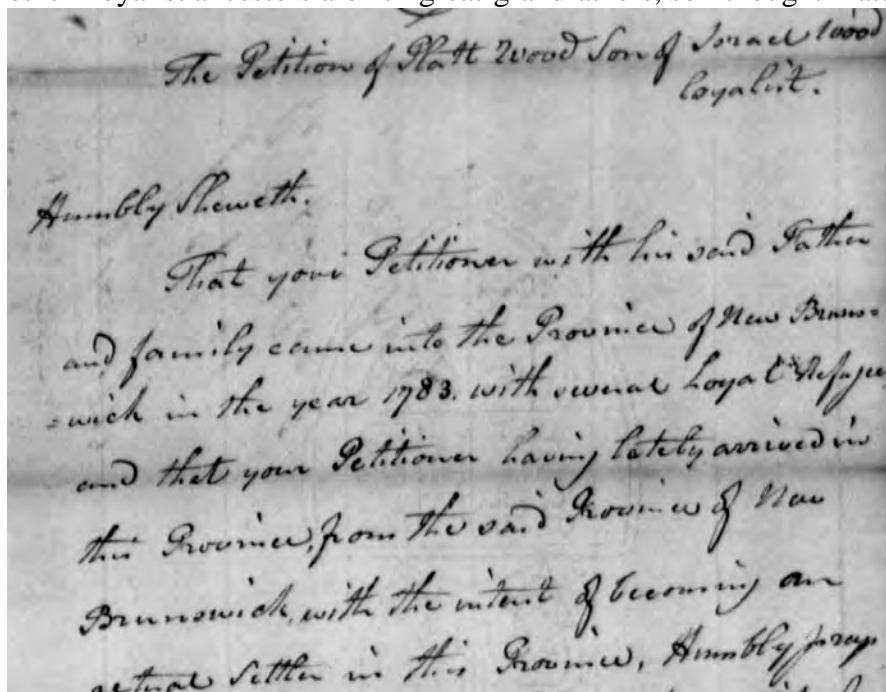 The Petition of Platt Wood Son of Israel Wood
Loyalist.
Humbly Sheweth.
That your Petitioner with his said Father
and family came into the Province of New Bruns=
=wick in the year 1783. with several Loyal Refugee
and that your Petitioner having lately arrived in
this Province, from the said Province of New
Brunswick, with the intent of becoming an
actual Settler in this Province, Humbly prays